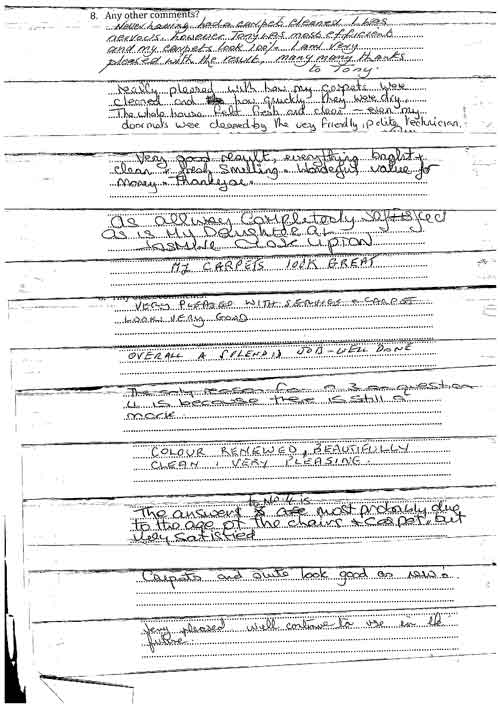 8. Any other comments?
Never having had a carpet cleaned I was
nervous, however Tony was most efficient
and my carpets look 100%. I am very
pleased with the result, many many thanks
to Tony.
really pleased with how my carpets were
cleaned and how quickly they were dry.
The whole house felt fresh and clean - even my
doormats were cleaned by the very friendly, polite technician.
Very good result, everything bright +
clean + fresh smelling. Wonderful value for
money. Thankyou.
As allways completely satisfied
as is my Daughter at
Jasmine Close Upton
MY CARPETS LOOK GREAT
VERY PLEASED WITH SERVICE & CARPET
LOOK VERY GOOD
OVERALL A SPLENDID JOB - WELL DONE
The only reason for a 3 on question
4 is because there is still a
mark
COLOUR RENEWED, BEAUTIFULLY
CLEAN, VERY PLEASING.
to No 4 is
The answers are most probably due
to the age of the chairs & carpet, but
Very satisfied
Carpets and suite look good as new!
Very pleased will continue to use in the
future